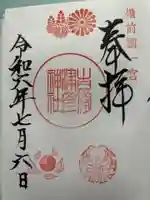 備前國一宮
奉拝
吉備津彦神社
令和六年七月六日